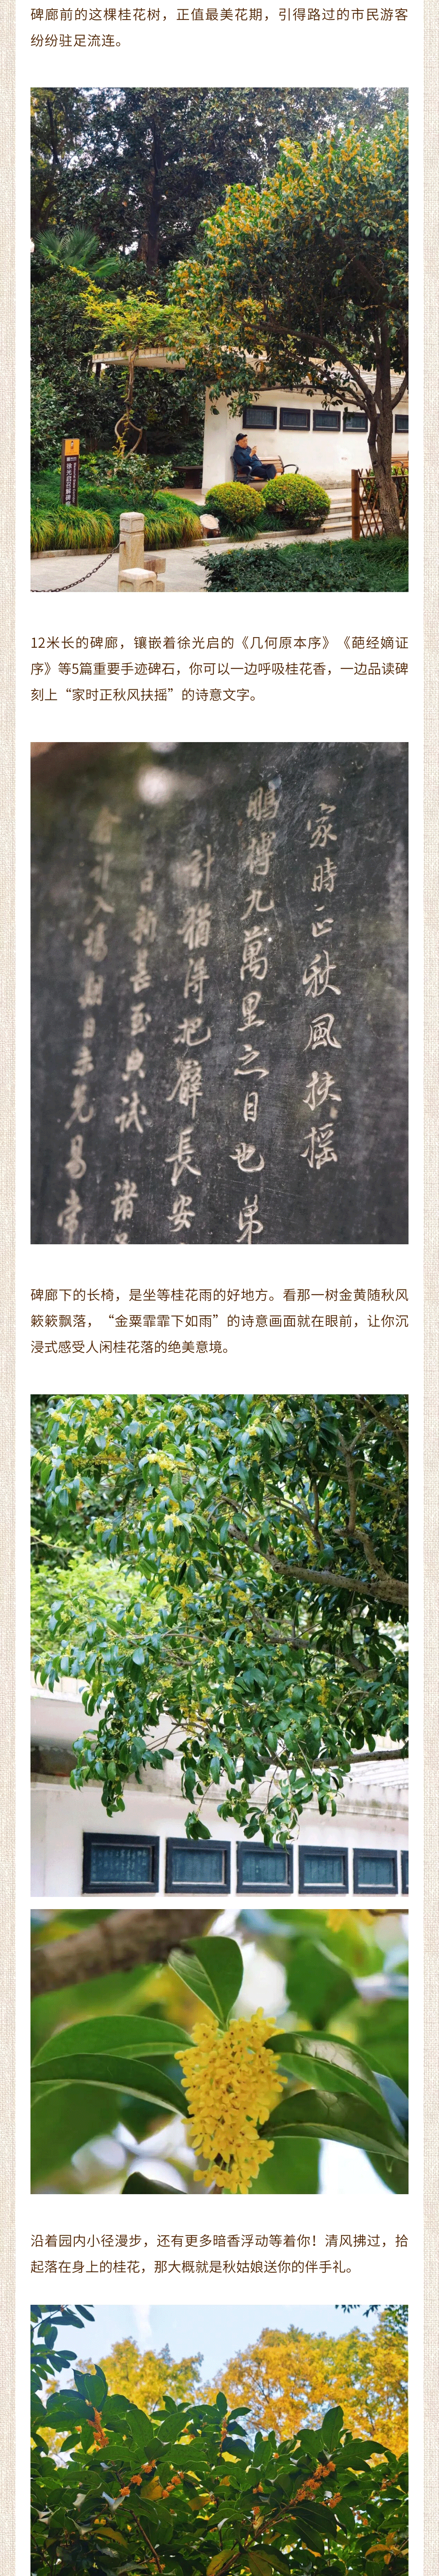 碑廊前的这棵桂花树，正值最美花期，引得路过的市民游客
纷纷驻足流连。
12米长的碑廊，镶嵌着徐光启的《几何原本序》《葩经嫡证
序》等5篇重要手迹碑石，你可以一边呼吸桂花香，一边品读碑
刻上“家时正秋风扶摇”的诗意文字。
家時正秋風扶摇
鵬搏九萬里之目也弟
計猶得把臂長安
碑廊下的长椅，是坐等桂花雨的好地方。看那一树金黄随秋风
簌簌飘落，“金粟霏霏下如雨”的诗意画面就在眼前，让你沉
浸式感受人闲桂花落的绝美意境。
沿着园内小径漫步，还有更多暗香浮动等着你！清风拂过，拾
起落在身上的桂花，那大概就是秋姑娘送你的伴手礼。